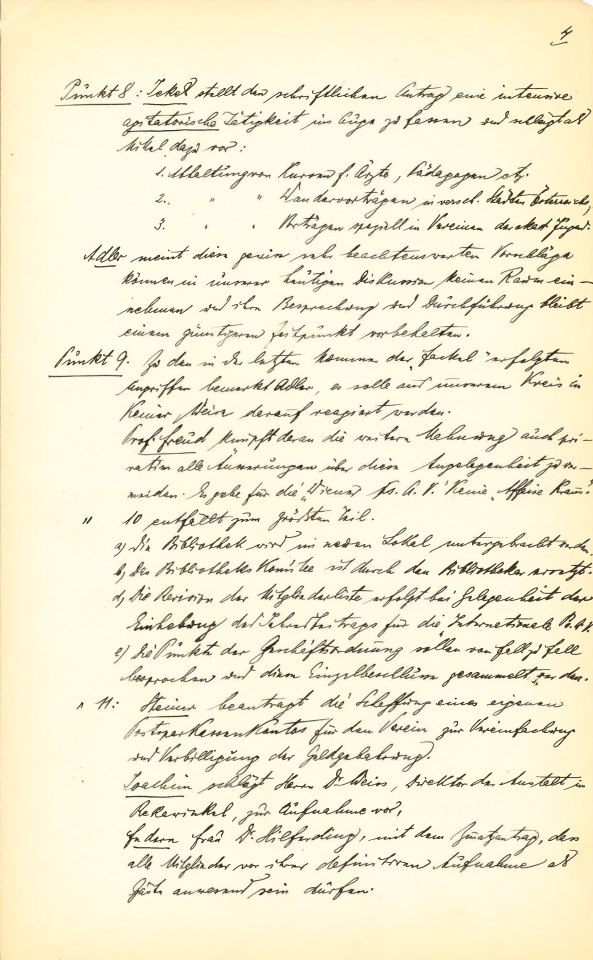 4
Punkt 8: Jekel stellt den schriftlichen Antrag eine intensive
agitatorische Tätigkeit ins Auge zu fassen und schlägt als
Mittel dazu vor:
1. Abhaltung von Kursen f. Ärzte, Pädagogen etz.
2. " " Wandervorträgen in versch. Städten Österreichs,
3. " " Vorträgen speziell in Vereinen der akad. Jugend.
Adler meint diese gewiss sehr beachtenswerten Vorschläge
können in unserer heutigen Diskussion keinen Raum ein-
nehmen und ihre Besprechung und Durchführung bleibt
einem günstigeren Zeitpunkt vorbehalten.
Punkt 9. Zu den in der letzten Nummer der "Fackel" erfolgten
Angriffen bemerkt Adler, es solle aus unserem Kreis in
keiner Weise darauf reagiert werden.
Prof. Freud knüpft daran die weitere Mahnung auch pri-
vatim alle Äusserungen über diese Angelegenheit zu ver-
meiden. Es gebe für die "Wiener Ps. A. V." keine "Affaire Kraus".
" 10 entfällt zum größten Teil.
a) Die Bibliothek wird im neuen Lokal untergebracht werden.
b) Das Bibliotheks Komitee ist durch den Bibliothekar ersetzt.
d) Die Revision der Mitgliederliste erfolgt bei Gelegenheit der
Einhebung des Jahresbeitrags für die Internationale Ps. A. V.
e) Die Punkte der Geschäftsordnung sollen von Fall zu Fall
besprochen und diese Einzelbeschlüsse gesammelt werden.
" 11: Steiner beantragt die Schaffung eines eigenen
Postsparkassenkontos für den Verein zur Vereinfachung
und Verbilligung der Geldgebahrung.
Joachim schlägt Herrn Dr. Weiss, Direktor der Anstalt in
Rekawinkel, zur Aufnahme vor,
Federn Frau Dr. Hilferding, mit dem Zusatzantrag, dass
alle Mitglieder vor ihrer definitiven Aufnahme als
Gäste anwesend sein dürfen.